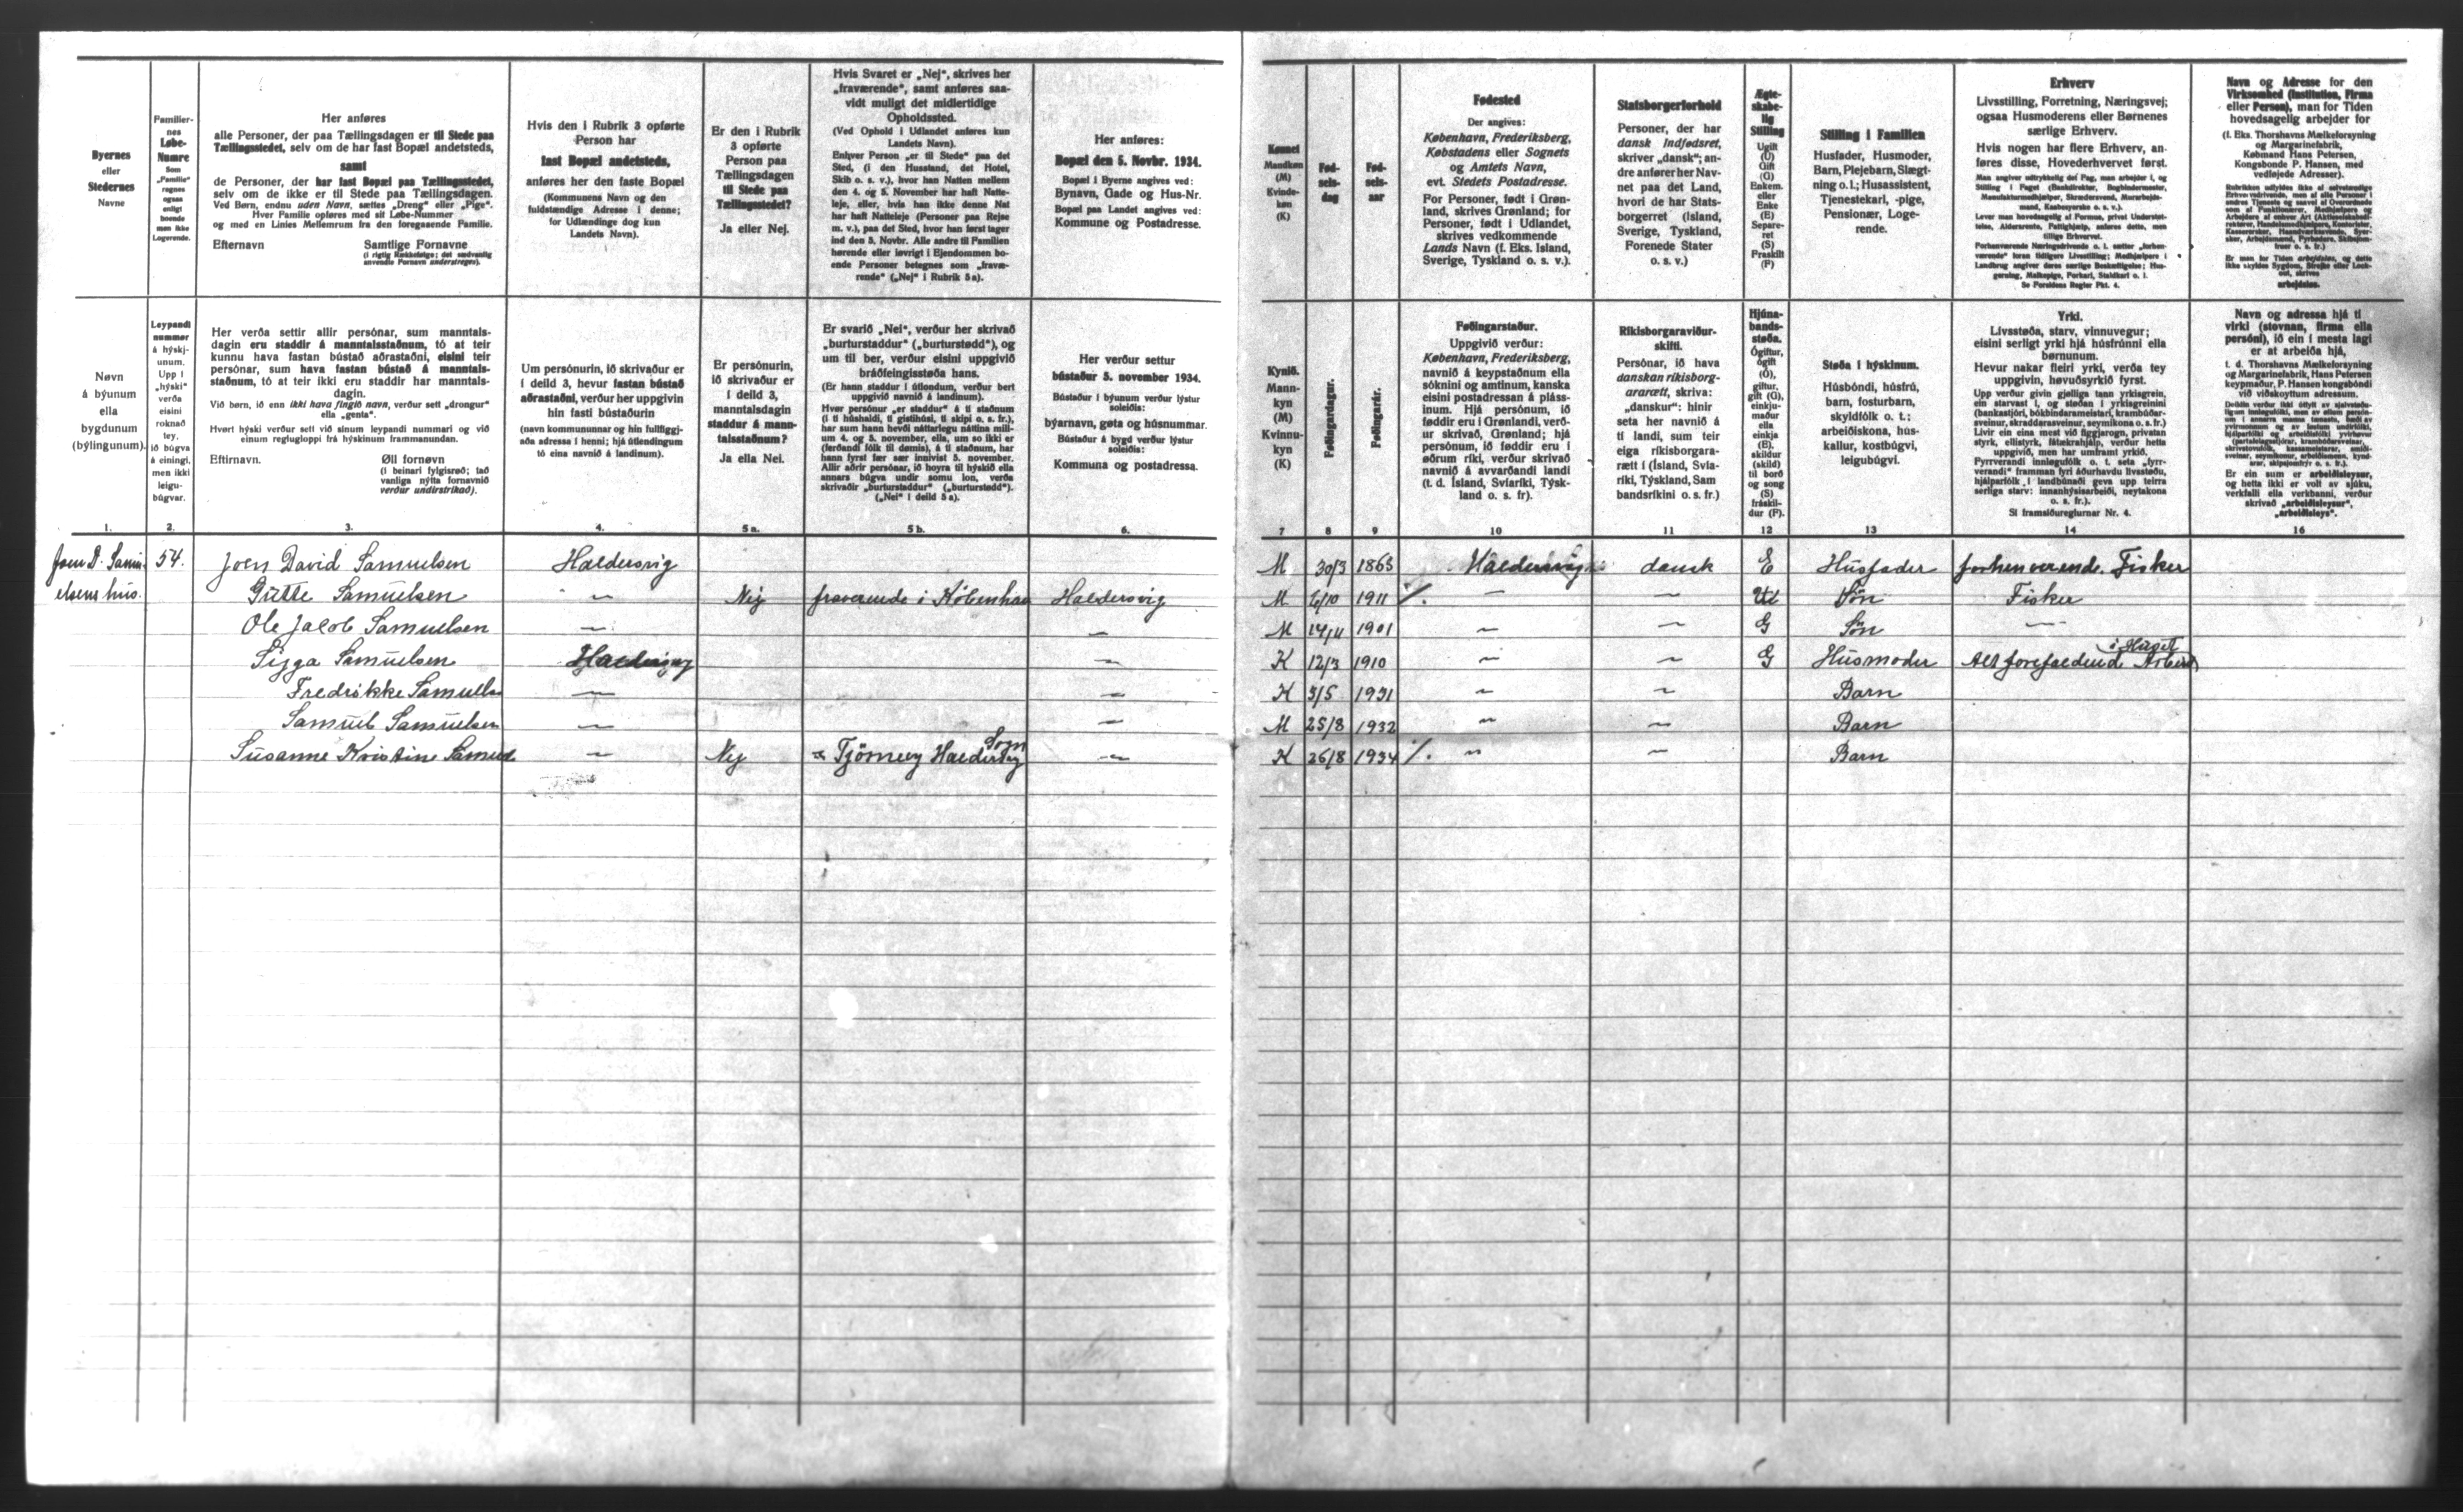 Byernes
eller
Stedernes
Navne
Familiernes
Løbe-
Numre
Som
„Familie"
regnes
ogsaa
enligt
boende
men ikke
Logerende.
Her anføres
alle Personer, der paa Tællingsdagen er til Stede paa
Tællingsstedet, selv om de har fast Bopæl andetsteds,
samt
de Personer, der har fast Bopæl paa Tællingsstedet,
selv om de ikke er til Stede paa Tællingsdagen.
Ved Børn, endnu uden Navn, sættes „Dreng" eller „Pige".
Hver Familie opføres med sit Løbe-Nummer
og med en Linies Mellemrum fra den foregaaende Familie.
Efternavn Samtlige Fornavne
(i rigtig Rækkefølge; det sædvanlig
anvendte Fornavn understreges).
Hvis den i Rubrik 3 opførte
Person har
fast Bopæl andetsteds,
anføres her den faste Bopæl
(Kommunens Navn og den
fuldstændige Adresse i denne;
for Udlændinge dog kun
Landets Navn).
Er den i Rubrik
3 opførte
Person paa
Tællingsdagen
til Stede paa
Tællingsstedet?
Ja eller Nej.
Hvis Svaret er „Nej", skrives her
„fraværende", samt anføres saa-
vidt muligt det midlertidige
Opholdssted.
(Ved Ophold i Udlandet anføres kun
Landets Navn).
Enhver Person „er til Stede" paa det
Sted, (i den Husstand, det Hotel,
Skib o. s. v.), hvor han Natten mellem
den 4. og 5. November har haft Natte-
leje, eller, hvis han ikke denne Nat
har haft Natteleje (Personer paa Rejse
m. v.), paa det Sted, hvor han først tager
ind den 5. Novbr. Alle andre til Familien
hørende eller iøvrigt i Ejendommen bo-
ende Personer betegnes som „fravæ-
rende" („Nej" i Rubrik 5 a).
Her anføres:
Bopæl den 5. Novbr. 1934.
Bopæl i Byerne angives ved:
Bynavn, Gade og Hus-Nr.
Bopæl paa Landet angives ved:
Kommune og Postadresse.
Kønnet
Mandkøn
(M)
Kvinde-
køn
(K)
Fød-
sels-
dag
Fød-
sels-
aar
Fødested
Der angives:
København, Frederiksberg,
Købstadens eller Sognets
og Amtets Navn,
evt. Stedets Postadresse.
For Personer, født i Grøn-
land, skrives Grønland; for
Personer, født i Udlandet,
skrives vedkommende
Lands Navn (f. Eks. Island,
Sverige, Tyskland o. s. v.).
Statsborgerforhold
Personer, der har
dansk Indfødsret,
skriver „dansk"; an-
dre anfører her Nav-
net paa det Land,
hvori de har Stats-
borgerret (Island,
Sverige, Tyskland,
Forenede Stater
o. s. v.)
Ægte-
skabe-
lig
Stilling
Ugift
(U)
Gift
(G)
Enkem.
eller
Enke
(E)
Separe-
ret
(S)
Fraskilt
(F)
Stilling i Familien
Husfader, Husmoder,
Barn, Plejebarn, Slægt-
ning o. l.; Husassistent,
Tjenestekarl, -pige,
Pensionær, Loge-
rende.
Erhverv
Livsstilling, Forretning, Næringsvej;
ogsaa Husmoderens eller Børnenes
særlige Erhverv.
Hvis nogen har flere Erhverv, an-
føres disse, Hovederhvervet først.
Se Forsidens Regler Pkt. 4.
Navn og Adresse for den
Virksomhed (Institution, Firma
eller Person), man for Tiden
hovedsagelig arbejder for
(f. Eks. Thorshavns Mælkeforsyning
og Margarinefabrik,
Købmand Hans Petersen,
Kongsbonde P. Hansen, med
vedføjede Adresser).
Er man for Tiden arbejdsløs, og dette
ikke skyldes Sygdom, Strejke eller Lock-
out, skrives
arbejdsløs.
Nøvn
á býunum
ella
bygdunum
(býlingunum).
Leypandi
nummer
á hýskj-
unum.
Upp í
„hýski"
verða
eisini
roknað
tey,
ið búgva
á einingi,
men ikki
leigu-
búgvar.
Her verða settir allir persónar, sum manntals-
dagin eru staddir á manntalsstaðnum, tó at teir
kunnu hava fastan bústað aðrastaðni, eisini teir
persónar, sum hava fastan bústað á manntals-
staðnum, tó at teir ikki eru staddir har manntals-
dagin.
Við børn, ið enn ikki hava fingið navn, verður sett „drongur"
ella „genta".
Hvørt hýski verður sett við sínum leypandi nummari og við
einum reglugloppi frá hýskinum frammanundan.
Eftirnavn. Øll fornøvn
(í beinari fylgisrøð; tað
vanliga nýtta fornavnið
verður undirstrikað).
Um persónurin, ið skrivaður er
í deild 3, hevur fastan bústað
aðrastaðni, verður her uppgivin
hin fasti bústaðurin
(navn kommununnar og hin fullfíggj-
aða adressa í henni; hjá útlendingum
tó eina navnið á landinum).
Er persónurin,
ið skrivaður er
í deild 3,
manntalsdagin
staddur á mann-
talsstaðnum?
Ja ella Nei.
Er svarið „Nei", verður her skrivað
„burturstaddur" („burturstødd"), og
um til ber, verður eisini uppgivið
bráðfeingisstøða hans.
(Er hann staddur í útlondum, verður bert
uppgivið navnið á landinum).
Hvør persónur „er staddur" á tí staðnum
(í tí húshaldi, tí gistihúsi, tí skipi o. s. fr.),
har sum hann hevði náttarlegu náttina mill-
um 4. og 5. november, ella, um so ikki er
(ferðandi fólk til dømis), á tí staðnum, har
hann fyrst fær sær innivist 5. november.
Allir aðrir persónar, ið hoyra til hýskið ella
annars búgva undir somu lon, verða
skrivaðir „burturstaddur" („burturstødd").
(„Nei" í deild 5 a).
Her verður settur
bústaður 5. november 1934.
Bústaður í býunum verður lýstur
soleiðis:
býarnavn, gøta og húsnummar.
Bústaður á bygd verður lýstur
soleiðis:
Kommuna og postadressa.
Kynið.
Mann-
kyn
(M)
Kvinnu-
kyn
(K)
Føðingardagur.
Føðingarár.
Føðingarstaður.
Uppgivið verður:
København, Frederiksberg,
navnið á keypstaðnum ella
sóknini og amtinum, kanska
eisini postadressan á pláss-
inum. Hjá persónum, ið
føddir eru í Grønlandi, verð-
ur skrivað, Grønland; hjá
persónum, ið føddir eru í
øðrum ríki, verður skrivað
navnið á avvarðandi landi
(t. d. Ísland, Svíaríki, Týsk-
land o. s. fr).
Ríkisborgaraviður-
skifti.
Persónar, ið hava
danskan ríkisborg-
ararætt, skriva:
„danskur": hinir
seta her navnið á
tí landi, sum teir
eiga ríkisborgara-
rætt í (Ísland, Svía-
ríki, Týskland, Sam
bandsríkini o. s. fr.)
Hjúna-
bands-
støða.
Ógiftur,
ógift
(Ó),
giftur,
gift (G),
einkju-
maður
ella
einkja
(E),
skildur
(skild)
til borð
og song
(S)
fráskil-
dur (F).
Støða í hýskinum.
Húsbóndi, húsfrú,
barn, fosturbarn,
skyldfólk o. t.;
arbeiðiskona, hús-
kallur, kostbúgvi,
leigubúgvi.
Yrki.
Livsstøða, starv, vinnuvegur;
eisini serligt yrki hjá húsfrúnni ella
børnunum.
Hevur nakar fleiri yrki, verða tey
uppgivin, høvuðsyrkið fyrst.
Sí framsíðureglurnar Nr. 4.
Navn og adressa hjá tí
virki (stovnan, firma ella
persóni), ið ein í mesta lagi
er at arbeiða hjá,
t. d. Thorshavns Mælkeforsyning
og Margarinefabrik, Hans Petersen
keypmaður, P. Hansen kongsbóndi
við viðskoyttum adressum.
Er ein sum er arbeiðsleysur,
og hetta ikki er volt av sjúku,
verkfalli ella verkbanni, verður
skrivað „arbeiðsleysur",
„arbeiðsleys".
1. 2. 3. 4. 5 a. 5 b. 6. 7 8 9 10 11 12 13 14 16
Joen D. Samu- 54. Joen David Samuelsen Haldersvig M 30/3 1863 Haldersvig dansk E Husfader forhenverende Fisker
elsens hus. Gutte Samuelsen — Nej fraverende i Københav Haldersvig M 6/10 1911 /. — — Søn Fisker
Ole Jacob Samuelsen — — M 14/11 1901 — — G Søn —
Sigga Samuelsen Haldersvig — K 12/3 1910 — — G Husmoder Alt forefaldend Arbeid i Huset
Fredrikke Samuels — — K 3/5 1931 — — Barn
Samuel Samuelsen — — M 25/8 1932 — — Barn
Susanne Kristine Samuel — Nej Tjörnevig Haldersvig Sogn — K 26/8 1934 /. — — Barn